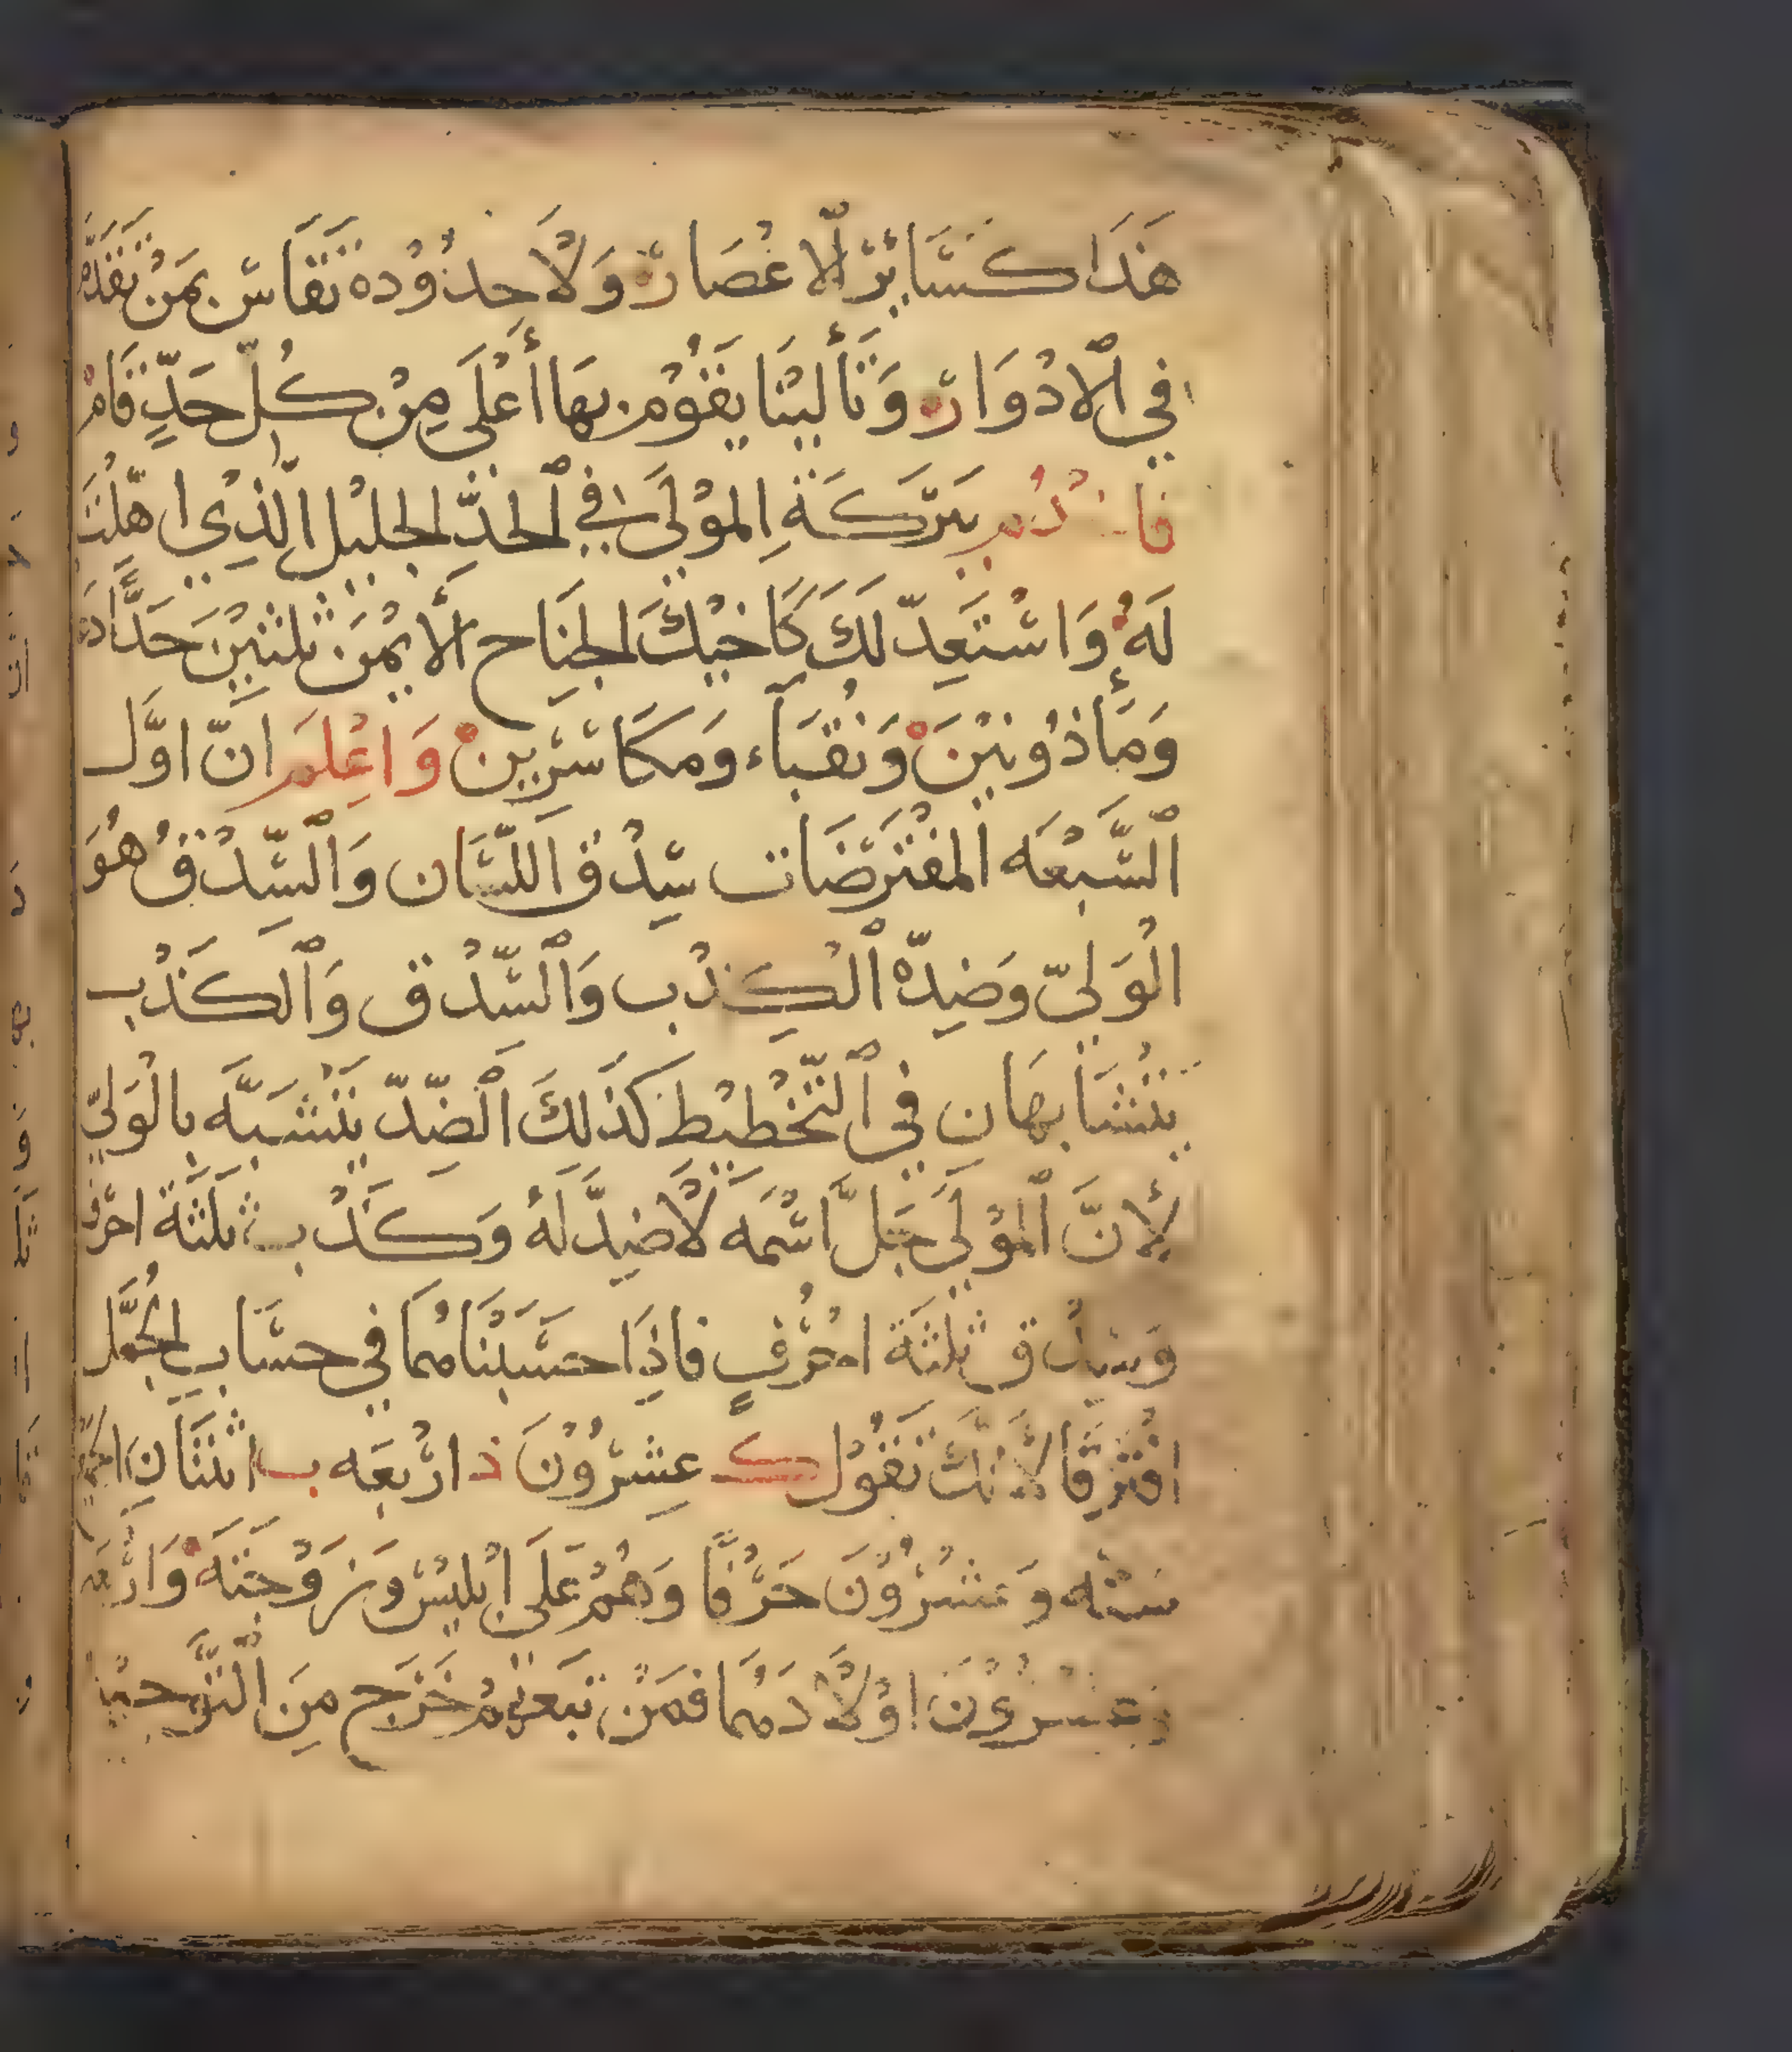 هَذَا كَسَائِرْ الاعْصَارْ وَلَاحِدُوْدهْ تقَاسْ بِمَنْ تقَدَّم
فِي الادْوَارْ وَتَأليْنَا يَقُوْم بهَا أعْلَى مِنْ كُلّ حَدٍّ قَامْ
بَرَكَةِ المَوْلَى فِي الحَدّ الجليْل الَّذِي اهّلْتَ
لَهُ وَاسْتَعِدّ لَكَ كَاخيْكَ الجنَاح الَايْمَن ثلثيْنَ حَدًّا دعَاه
وَمَأذُونيْنَ وَنُقبَاء وَمكَاسْرِينْ وَاعْلَم انّ اوَّل
السَّبْعَه المفْتَرَضَات سِدْق اللسَان وَالسِّدْق هُوَ
الْوَلِيّ وَضِدّهُ الكِذْب وَالسِّدْق وَالكَذْب
يَتْشَابهَان فِي التّخْطيْط كَذَلِكَ الضِدّ يَتشَبَّه بِالْوَلِيّ
لِأنَّ المَوْلَى جَلَّ اسْمَه لَاضِدَّ لَهُ وَكَذْب ثلثَة احرُف
وَسِدْق ثلثَة احْرُفٍ فَاذَا حسَبْنَاهُمَا فِي حسَاب الجُمَّل
افْتَرقَا لأنكَ تقُوْل ك عِشْرُوْنَ ذ ارْبعَه ب اثنَانِ
ستّه وَعشْرُوْنَ حَرْفًا وَهُمْ عَلَى ابْليْسْ وَزَوْجتَهْ وَارْبَعَه
وَعشْرُوْنَ اوْلَادهُمَا فمَنْ تبَعهُمْ خَرَج مِنَ التَّوحيْد